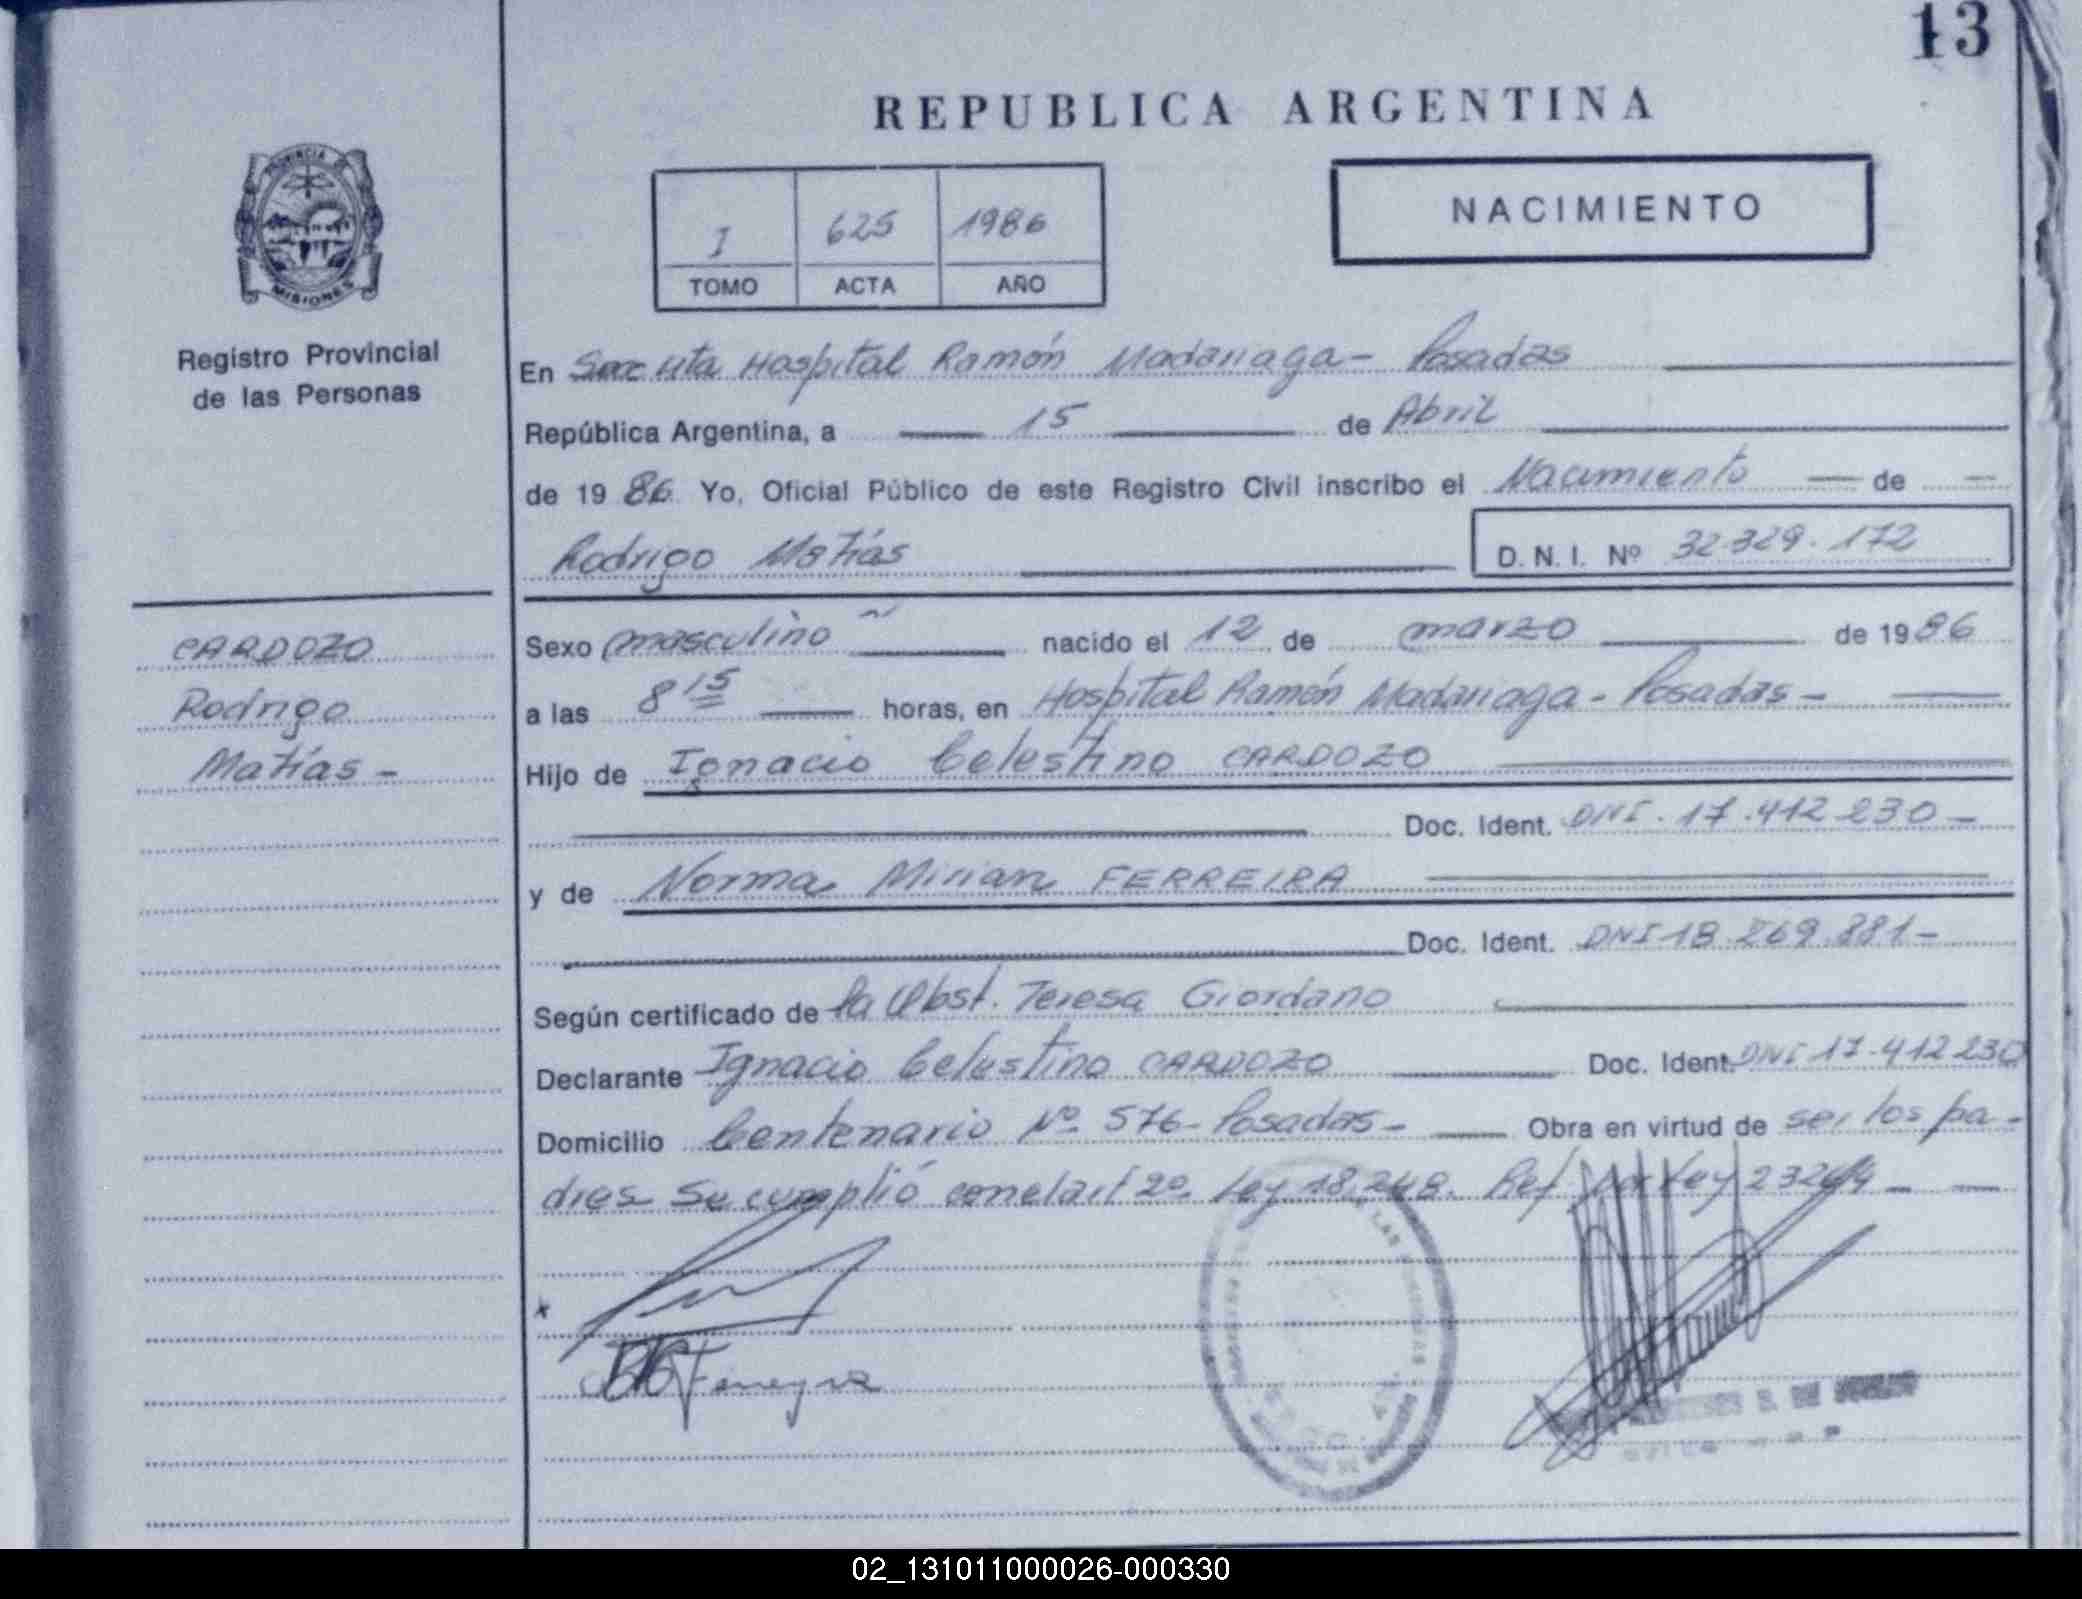 13
REPUBLICA ARGENTINA
PROVINCIA DE
MISIONES
Registro Provincial
de las Personas
I 625 1986
TOMO ACTA AÑO
NACIMIENTO
En Hospital Ramón Madariaga - Posadas
República Argentina, a 15 de Abril
de 1986 Yo, Oficial Público de este Registro Civil inscribo el Nacimiento — de —
Rodrigo Matías
D. N. I. Nº 32.329.172
CARDOZO
Rodrigo
Matías -
Sexo masculino nacido el 12 de marzo de 1986
a las 8 15 horas, en Hospital Ramón Madariaga - Posadas -
Hijo de Ignacio Celestino CARDOZO
Doc. Ident. DNI. 17.412.230 -
y de Norma Mirian FERREIRA
Doc. Ident. DNI 18.269.881 -
Según certificado de la Obst. Teresa Giordano
Declarante Ignacio Celestino CARDOZO Doc. Ident. DNI 17.412.230
Domicilio Centenario Nº 576 - Posadas - Obra en virtud de ser los pa-
dres Se cumplió con el art 2º Ley 18.248. Ref. por Ley 23264 -
02_131011000026-000330